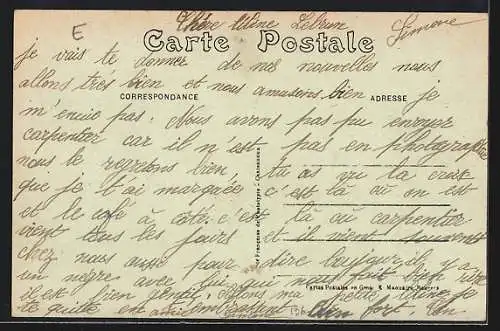 E
Chère Mme Lebrun Simone
Carte Postale
je vais te donner de nos nouvelles nous
allons très bien et nous amusons bien je
CORRESPONDANCE ADRESSE
m'ennuie pas. Nous avons pas pu envoyer
carpentier car il n'est pas en photographie
nous le regretons bien, tu as vu la croix
que je t'ai marquée c'est là ou on est
et le café à coté c'est là où carpentier
vient tous les jours et il vient souvent
chez nous aussi pour dire bonjour, il y a
un nègre avec qui nous fait bien rire
il est bien gentil. ma petite je
te quitte en embrassant bien fort. ton
amie
Cartes Postales en Gros
136